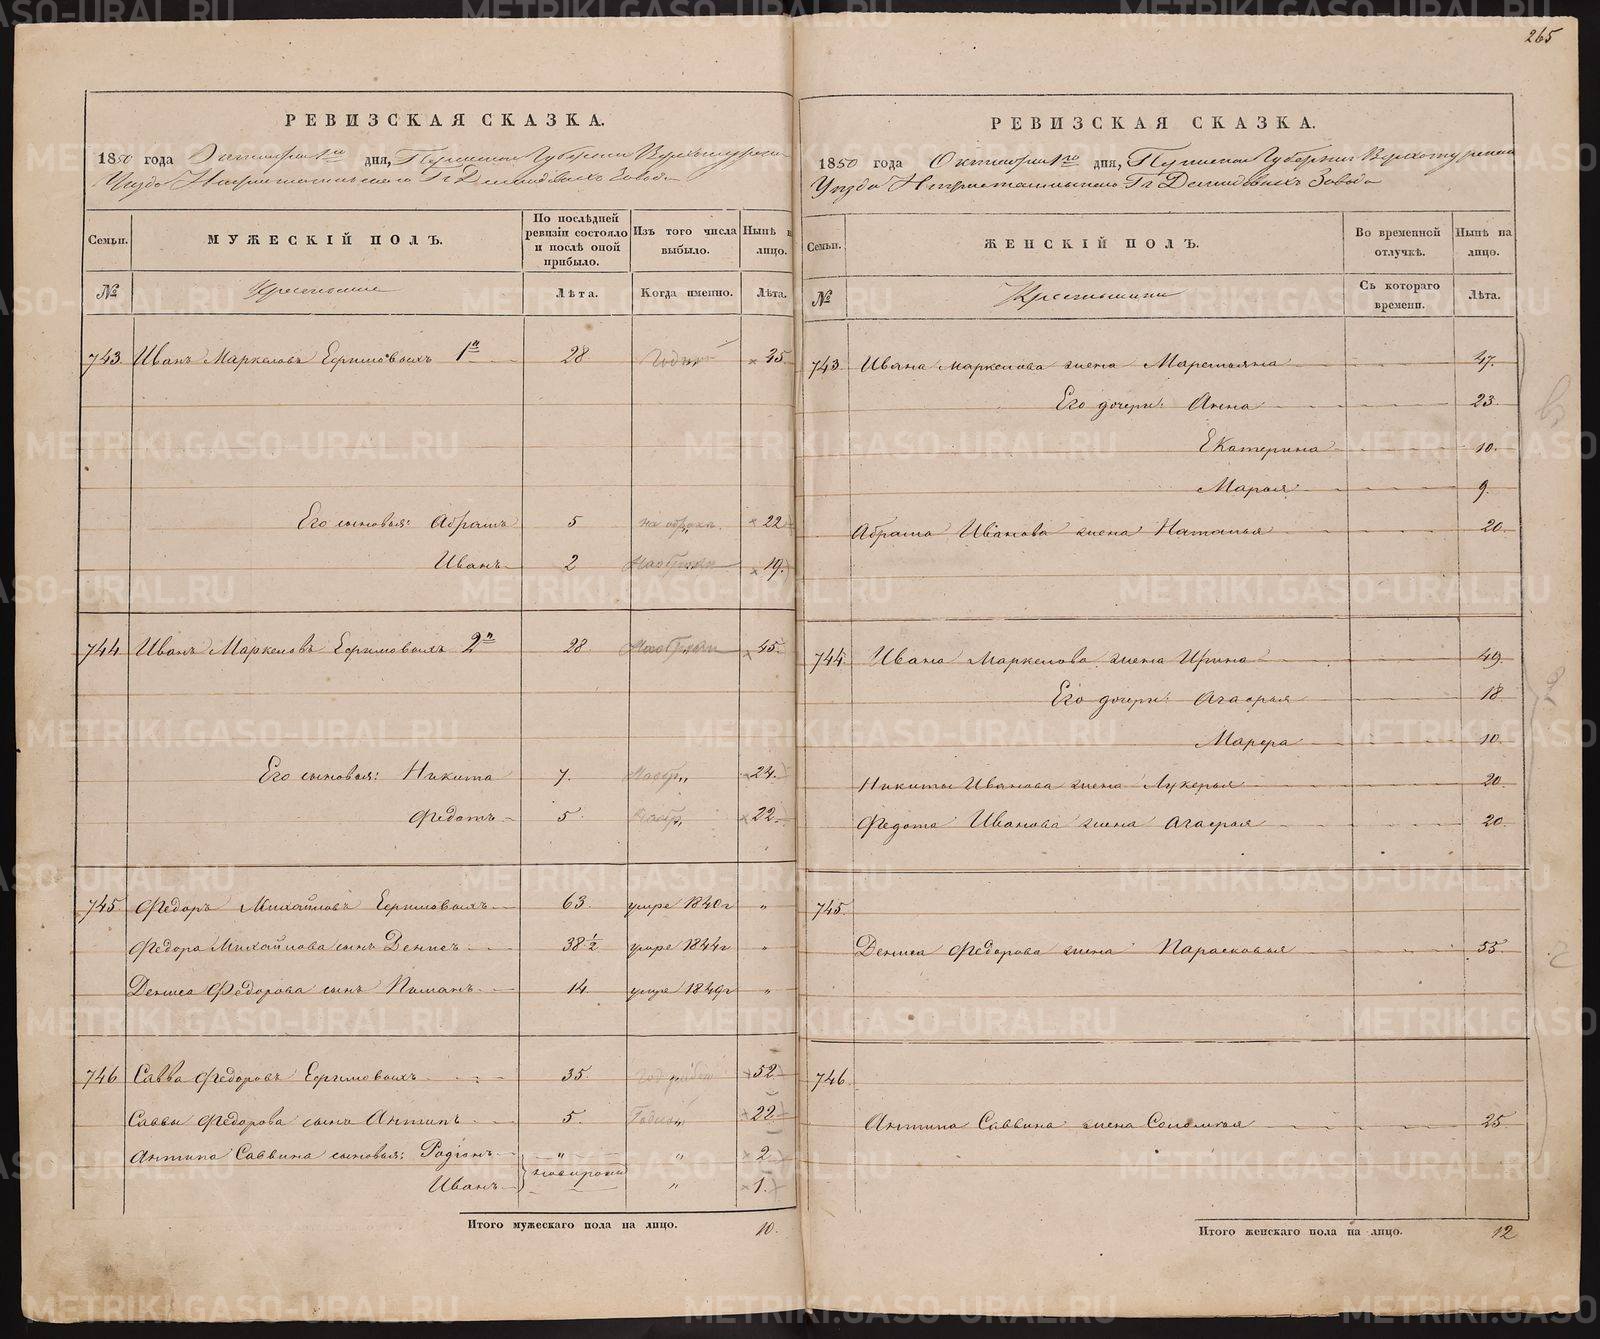 265
РЕВИЗСКАЯ СКАЗКА.
1850 года Октября 1го дня, Пермской Губернии Верхотурскаго
Уезда Нижнетагильскаго Гг Демидовыхъ Завода
Семьи. МУЖЕСКІЙ ПОЛЪ. По послѣдней ревизіи состояло и послѣ оной прибыло. Изъ того числа выбыло. Нынѣ на лицо.
№ Крестьяне Лѣта. Когда именно. Лѣта.
743 Иванъ Маркеловъ Ефимовыхъ 1й 28 Годный 45
Его сыновья: Абрамъ 5 на оброкѣ 22
Иванъ 2 19.
744 Иванъ Маркеловъ Ефимовыхъ 2й 28 45.
Его сыновья: Никита 7. 24.
Федотъ 5 22.
745 Федоръ Михайловъ Ефимовыхъ 63. умре 1840г "
Федора Михайлова сынъ Денисъ 38½ умре 1844г "
Дениса Федорова сынъ Пиманъ 14. умре 1840г "
746 Савва Федоровъ Ефимовыхъ 35. 52
Саввы Федорова сынъ Антипъ 5. Годный 22
Антипа Саввина сыновья: Родіонъ " новорожд " 2
Иванъ " 1.
Итого мужескаго пола на лицо. 10.
РЕВИЗСКАЯ СКАЗКА.
1850 года Октября 1го дня, Пермской Губернии Верхотурскаго
Уезда Нижнетагильскаго Гг Демидовыхъ Завода
Семьи. ЖЕНСКІЙ ПОЛЪ. Во временной отлучкѣ. Нынѣ на лицо.
№ Крестьянки Съ котораго времени. Лѣта.
743. Ивана Маркелова жена Маремьяна 47.
Его дочери: Анна 23.
Екатерина 10.
Марья 9.
Абрама Иванова жена Наталья 20.
744. Ивана Маркелова жена Ирина 49.
Его дочери: Агафья 18
Марфа 10.
Никиты Иванова жена Лукерья 20.
Федота Иванова жена Агафья 20.
745.
Дениса Федорова жена Парасковья 55.
746.
Антипа Саввина жена Соломея 25
Итого женскаго пола на лицо. 12
METRIKI.GASO-URAL.RU